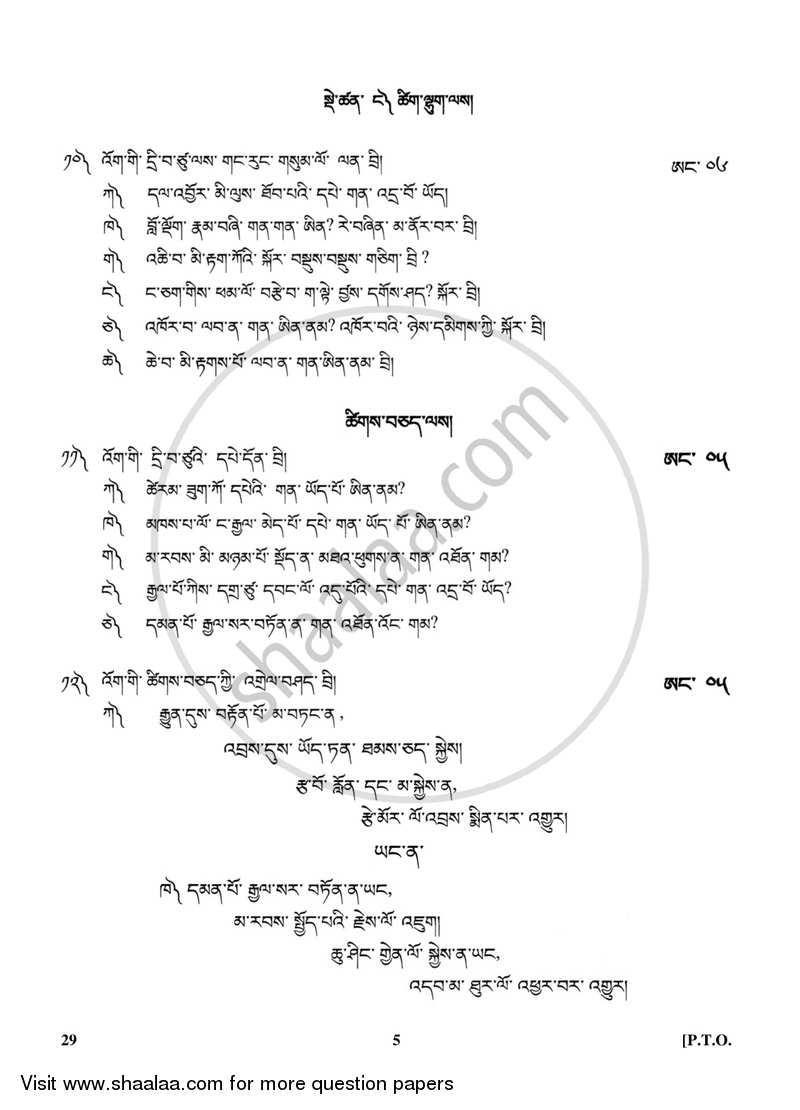 སྡེ་ཚན་ ང༽ ཚིག་ལྷུག་ལས།
༡༠༽ འོག་གི་ དྲི་བ་ཙུ་ལས་ གང་རུང་ གསུམ་ལོ་ ལན་ བྲི།
ཨང་ ༠༦
ཀ༽ དལ་འབྱོར་ མི་ལུས་ ཐོབ་པའི་ དཔེ་ གན་ འདྲ་བོ་ ཡོད།
ཁ༽ བློ་ལྡོག་ རྣམ་བཞི་ གན་གན་ ཨིན? རེ་བཞིན་ མ་ནོར་བར་ བྲི།
ག༽ འཆི་བ་ མི་རྟག་ཀོའི་ སྐོར་ བསྡུས་བསྡུས་ གཅིག་ བྲི ?
ང༽ ང་ཅག་གིས་ ཕམ་ལོ་ བརྩེ་བ་ ག་ལྟེ་ བྱས་ དགོས་ཤད? སྐོར་ བྲི།
ཅ༽ འཁོར་བ་ ལབ་ན་ གན་ ཨིན་ནམ? འཁོར་བའི་ ཉེས་དམིགས་ཀྱི་ སྐོར་ བྲི།
ཆ༽ ཆེ་བ་ མི་རྟགས་པོ་ ལབ་ན་ གན་ཨིན་ནམ་ བྲི།
ཚིགས་བཅད་ལས།
༡༡༽ འོག་གི་ དྲི་བ་ཙུའི་ དཔེ་དོན་ བྲི།
ཨང་ ༠༥
ཀ༽ ཚེརམ་ ཟུག་ཀོ་ དཔེའི་ གན་ ཡོད་པོ་ ཨིན་ནམ?
ཁ༽ མཁས་པ་ལོ་ ང་རྒྱལ་ མེད་པོ་ དཔེ་ གན་ ཡོད་ པོ་ ཨིན་ནམ?
ག༽ མ་རབས་ མི་ མཉམ་པོ་ སྡོད་ན་ མཐའ་ཕུགས་ན་ གན་ འཐོན་ གམ?
ང༽ རྒྱལ་པོ་ཀིས་ དགྲ་ཙུ་ དབང་ལོ་ འདུ་པོའི་ དཔེ་ གན་ འདྲ་བོ་ ཡོད?
ཅ༽ དམན་པོ་ རྒྱལ་སར་བཏོན་ན་ གན་ འཐོན་འོང་ གམ?
༡༢༽ འོག་གི་ ཚིགས་བཅད་ཀྱི་ འགྲེལ་བཤད་ བྲི།
ཨང་ ༠༥
ཀ༽ རྒྱུན་དུས་ བརྟོན་པོ་ མ་བཏང་ན ,
འབྲས་དུས་ ཡོད་ཏན་ ཐམས་ཅད་ སྐྱེས།
རྩ་བོ་ རློན་ དང་ མ་སྐྱེས་ན,
རྩེ་མོར་ ལོ་འབྲས་ སྨིན་པར་ འགྱུར།
ཡང་ན་
ཁ༽ དམན་པོ་ རྒྱལ་སར་ བཏོན་ན་ཡང,
མ་རབས་ སྤྱོད་པའི་ རྗེས་ལོ་ འཇུག།
ཆུ་ཤིང་ གྱེན་ལོ་ སྐྱེས་ན་ཡང,
འདབ་མ་ ཐུར་ལོ་ འཕྱར་བར་ འགྱུར།
29
5
[P.T.O.
shaalaa.com
Visit www.shaalaa.com for more question papers